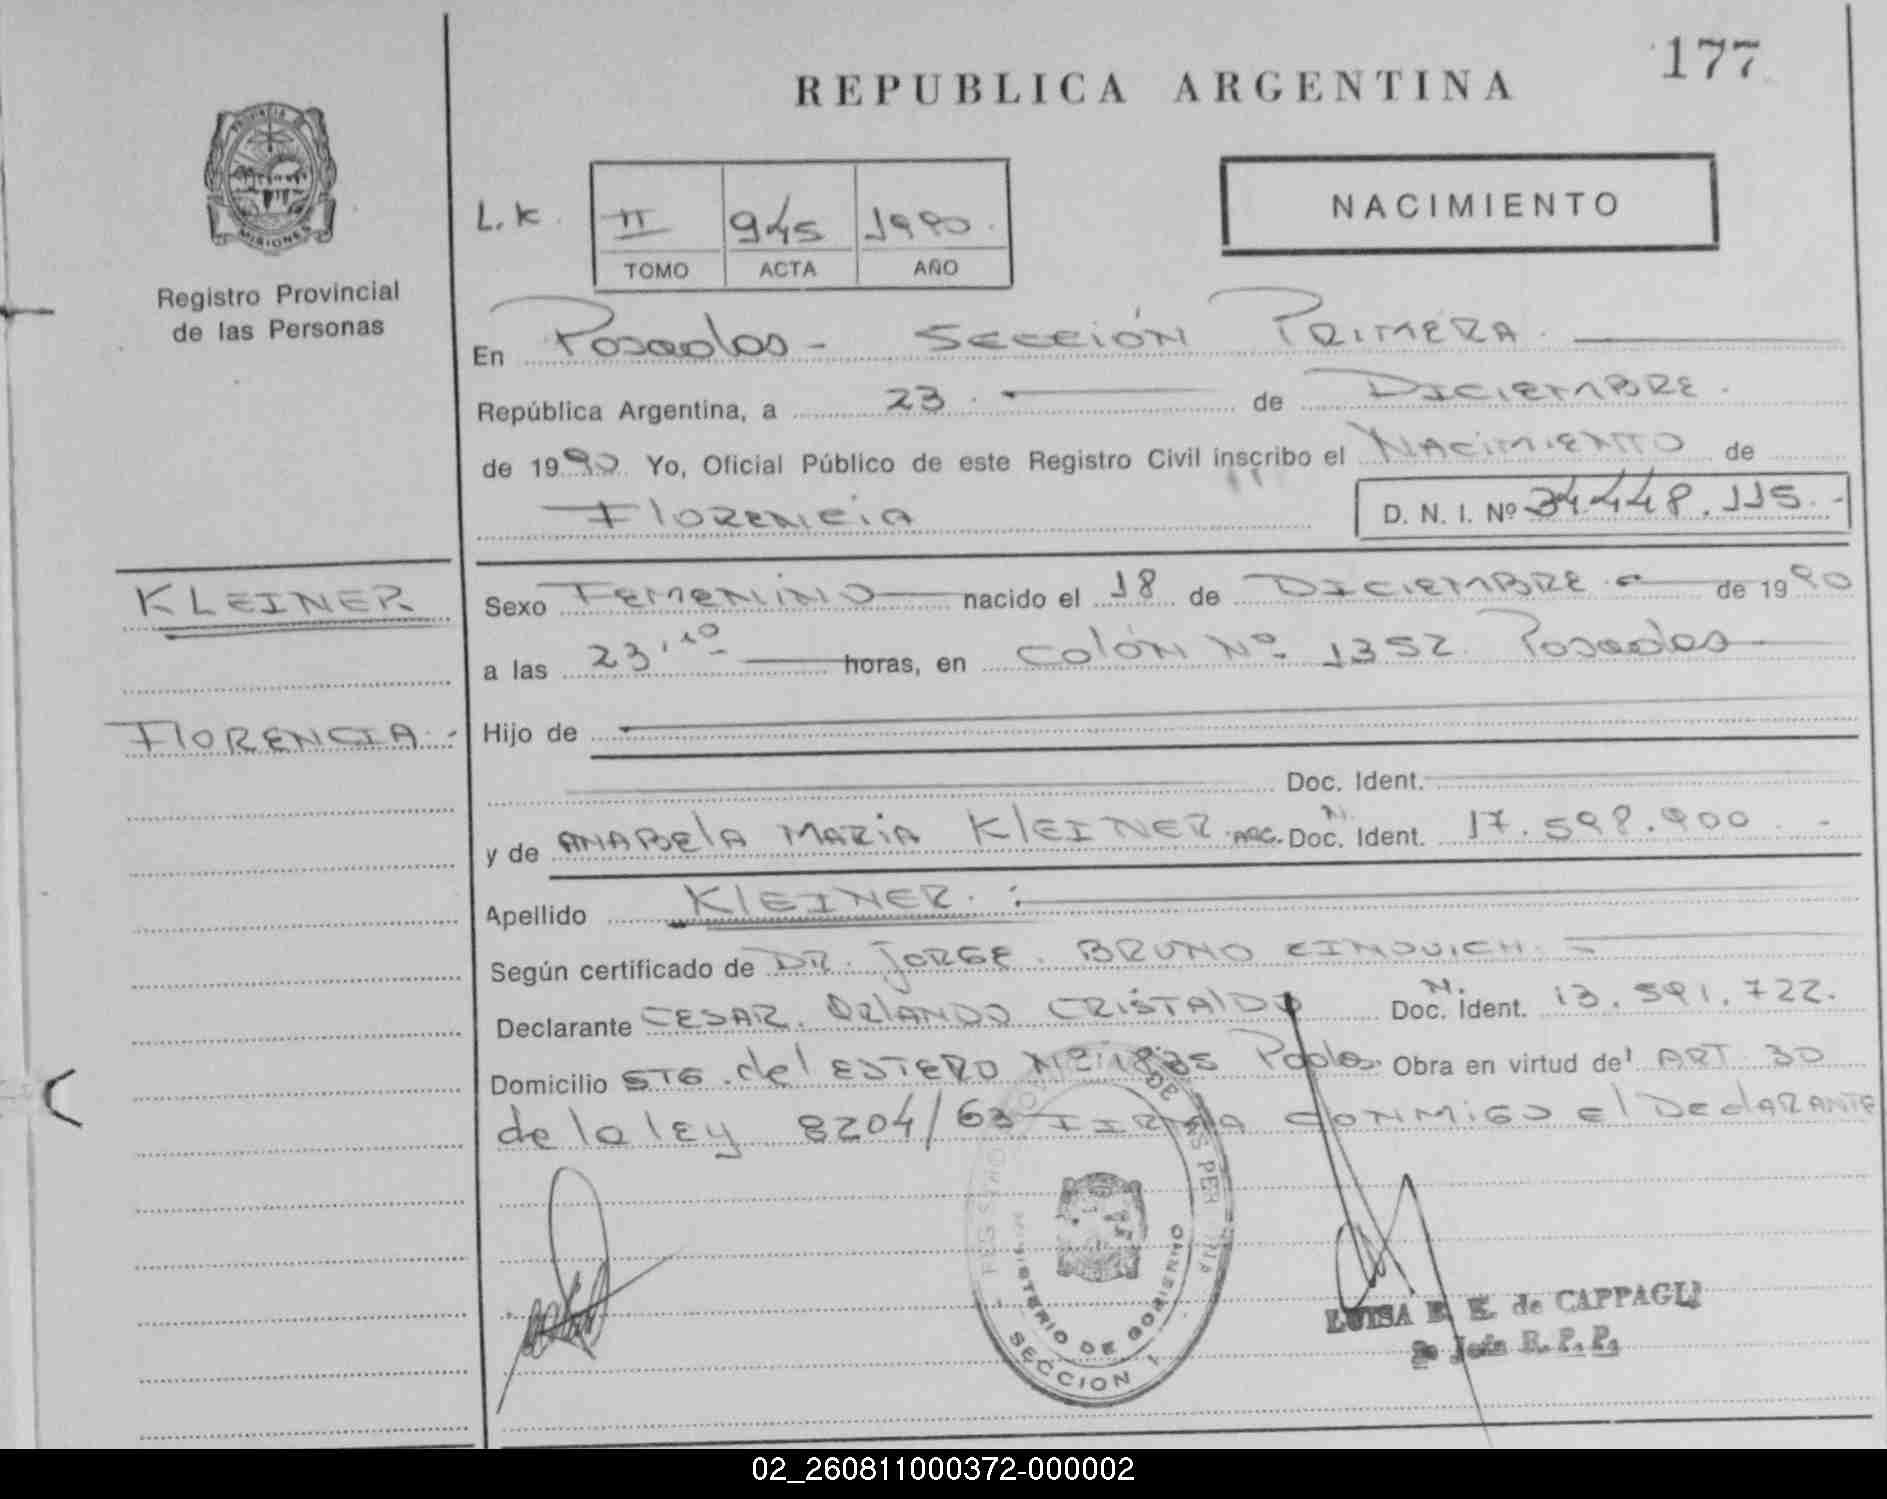 177
REPUBLICA ARGENTINA
PROVINCIA DE
MISIONES
Registro Provincial
de las Personas
L.K. II 945 1990.
TOMO ACTA AÑO
NACIMIENTO
En Posadas - SECCIÓN PRIMERA.
República Argentina, a 23. de DICIEMBRE.
de 1990 Yo, Oficial Público de este Registro Civil inscribo el NACIMIENTO de
FlORENCiA D. N. I. Nº 34.448.115.-
KLEINER
Sexo FEMENINO nacido el 18 de DICIEMBRE de 1990
a las 23,10 horas, en COlÓN Nº 1352 Posadas
FlORENCIA.-
Hijo de
Doc. Ident.
y de ANABElA MARIA KlEINER ARG. Doc. N. Ident. 17.598.900.-
Apellido KlEINER.:
Según certificado de DR. JORGE. BRUNO
Declarante CESAR. ORlANDO CRISTAlDO Doc. N. Ident. 13.591.722.
Domicilio STG. del ESTERO Pdas. Obra en virtud del ART 30
de la lEy 8204/63 FIRMA CONMIGO El DEClARANTE
MINISTERIO DE GOBIERNO
SECCION 1
LUISA E. K. de CAPPAGLI
Jefe R. P. P.
02_260811000372-000002